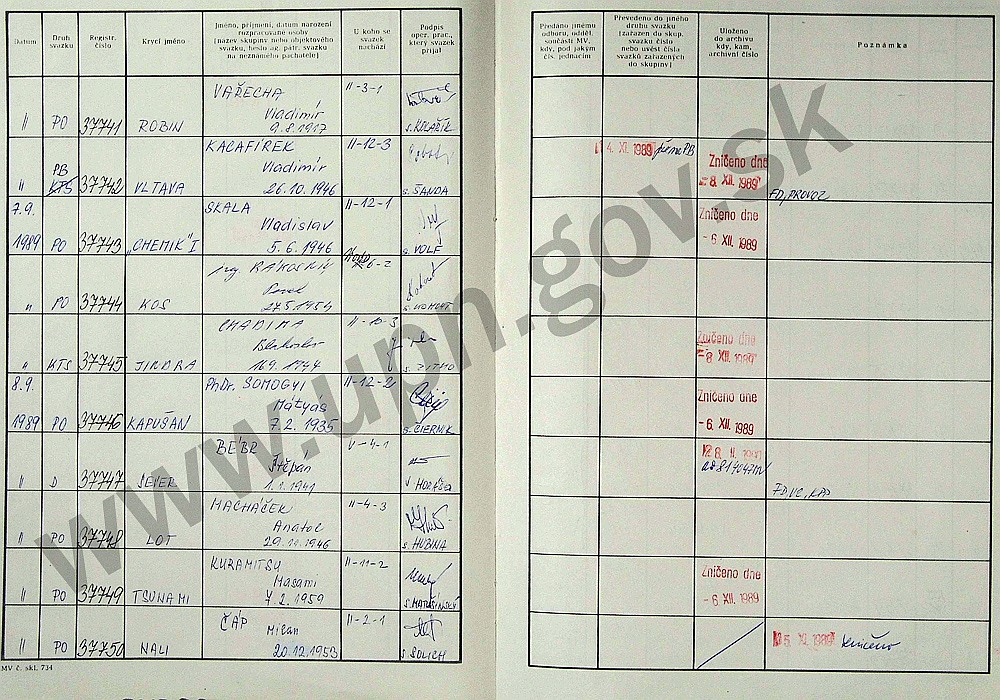 Datum
Druh svazku
Registr. číslo
Krycí jméno
Jméno, příjmení, datum narození
rozpracované osoby
(název skupiny nebo objektového
svazku, heslo ag. pátr. svazku
na neznámého pachatele)
U koho se
svazek
nachází
Podpis
oper. prac.,
který svazek
přijal
Předáno jinému
odboru, odděl.
součásti MV,
kdy, pod jakým
čís. jednacím
Převedeno do jiného
druhu svazku
(zařazen do skup.
svazku číslo
nebo uvést čísla
svazků zařazených
do skupiny)
Uloženo
do archivu
kdy, kam,
archivní číslo
Poznámka
VAŘECHA II-3-1
Vladimír
II PO 37741 ROBIN 9.8.1917 s. KOLAŘÍK
KACAFÍREK II-12-3
PB Vladimír
II KTS 37742 VLTAVA 26.10.1946 s. ŠANDA
4. XI. 1989 PB
Zničeno dne
-8. XII. 1989
FD, PROVOZ
7.9. SKALA II-12-1
Vladislav
1989 PO 37743 „CHEMIK" I 5.6.1946 s. VOLF
Zničeno dne
-6. XII. 1989
ing. RÁKOSNÍK
II PO 37744 KOS 27.5.1954
CHADIMA II-10-3
II KTS 37745 JINDRA 16.9.1944
Zničeno dne
-8. XII. 1989
8.9. PhDr. SOMOGYI II-12-2
Mátyás
1989 PO 37746 KAPUŠAN 7.2.1935 s. CIERNIK
Zničeno dne
-6. XII. 1989
BÉBR V-4-1
Štěpán
II D 37747 SEVER 1.1.1941
FD, VC, KPP
MACHÁČEK II-4-3
Anatol
II PO 37748 LOT 29.11.1946 s. HUBINA
KURAMITSU II-11-2
Masami
II PO 37749 TSUNAMI 7.2.1959 s. MATUŠINSKÝ
Zničeno dne
-6. XII. 1989
ČÁP II-2-1
Milan
II PO 37750 NALI 20.12.1953 s. SOLICH
5. XI. 1989 zničeno
MV č. skl. 734
www.upn.gov.sk